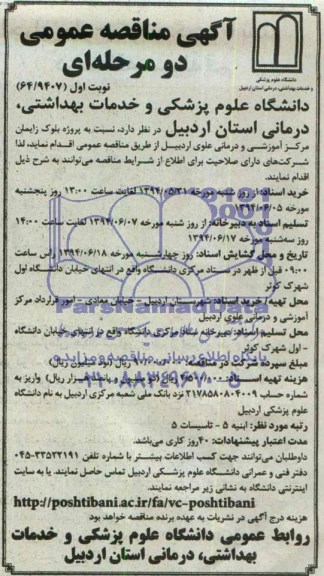 آگهی مناقصه عمومی
دو مرحله‌ای
دانشگاه علوم پزشکی
و خدمات بهداشتی، درمانی استان اردبیل
نوبت اول (۶۴/۹۴۰۷)
دانشگاه علوم پزشکی و خدمات بهداشتی،
درمانی استان اردبیل در نظر دارد، نسبت به پروژه بلوک زایمان
مرکز آموزشی و درمانی علوی اردبیل از طریق مناقصه عمومی اقدام نماید، لذا
شرکت‌های دارای صلاحیت برای اطلاع از شرایط مناقصه می‌توانند به شرح ذیل
اقدام نمایند.
خرید اسناد: از روز شنبه مورخه ۱۳۹۴/۰۵/۳۱ لغایت ساعت ۱۳:۰۰ روز پنجشنبه
مورخه ۱۳۹۴/۰۶/۰۵
تسلیم اسناد به دبیرخانه: از روز شنبه مورخه ۱۳۹۴/۰۶/۰۷ لغایت ساعت ۱۴:۰۰
روز سه‌شنبه مورخه ۱۳۹۴/۰۶/۱۷
تاریخ و محل گشایش اسناد: روز چهارشنبه مورخه ۱۳۹۴/۰۶/۱۸ راس ساعت
۰۹:۰۰ قبل از ظهر در ستاد مرکزی دانشگاه واقع در انتهای خیابان دانشگاه اول
شهرک کوثر
محل تهیه/ خرید اسناد: شهرستان اردبیل - خیابان معادی - امور قرارداد مرکز
آموزشی و درمانی علوی اردبیل
محل تسلیم اسناد: دبیرخانه ستاد مرکزی دانشگاه واقع در انتهای خیابان دانشگاه
- اول شهرک کوثر
مبلغ سپرده شرکت در مناقصه: ریال (نود میلیون ریال)
هزینه تهیه اسناد: ریال) واریز به
حساب ۲۱۷۸۵۸۰۸۰۴۰۰۹ نزد بانک ملی شعبه مرکزی اردبیل به نام دانشگاه
علوم پزشکی اردبیل
رتبه مورد نظر: ابنیه ۵ - تاسیسات ۵
مدت اعتبار پیشنهادات: ۴۰ روز کاری می‌باشد.
داوطلبان می‌توانند جهت کسب اطلاعات بیشتر با شماره تلفن ۳۳۵۲۲۱۹۱-۰۴۵
دفتر فنی و عمرانی دانشگاه علوم پزشکی اردبیل تماس حاصل نمایند. یا به سایت
اینترنتی دانشگاه به نشانی زیر مراجعه نمایند.
http://poshtibani.ac.ir/fa/vc-poshtibani
هزینه درج آگهی در نشریات به عهده برنده مناقصه خواهد بود
روابط عمومی دانشگاه علوم پزشکی و خدمات
بهداشتی، درمانی استان اردبیل
ParsNamadData
پایگاه اطلاع رسانی مناقصه و مزایده